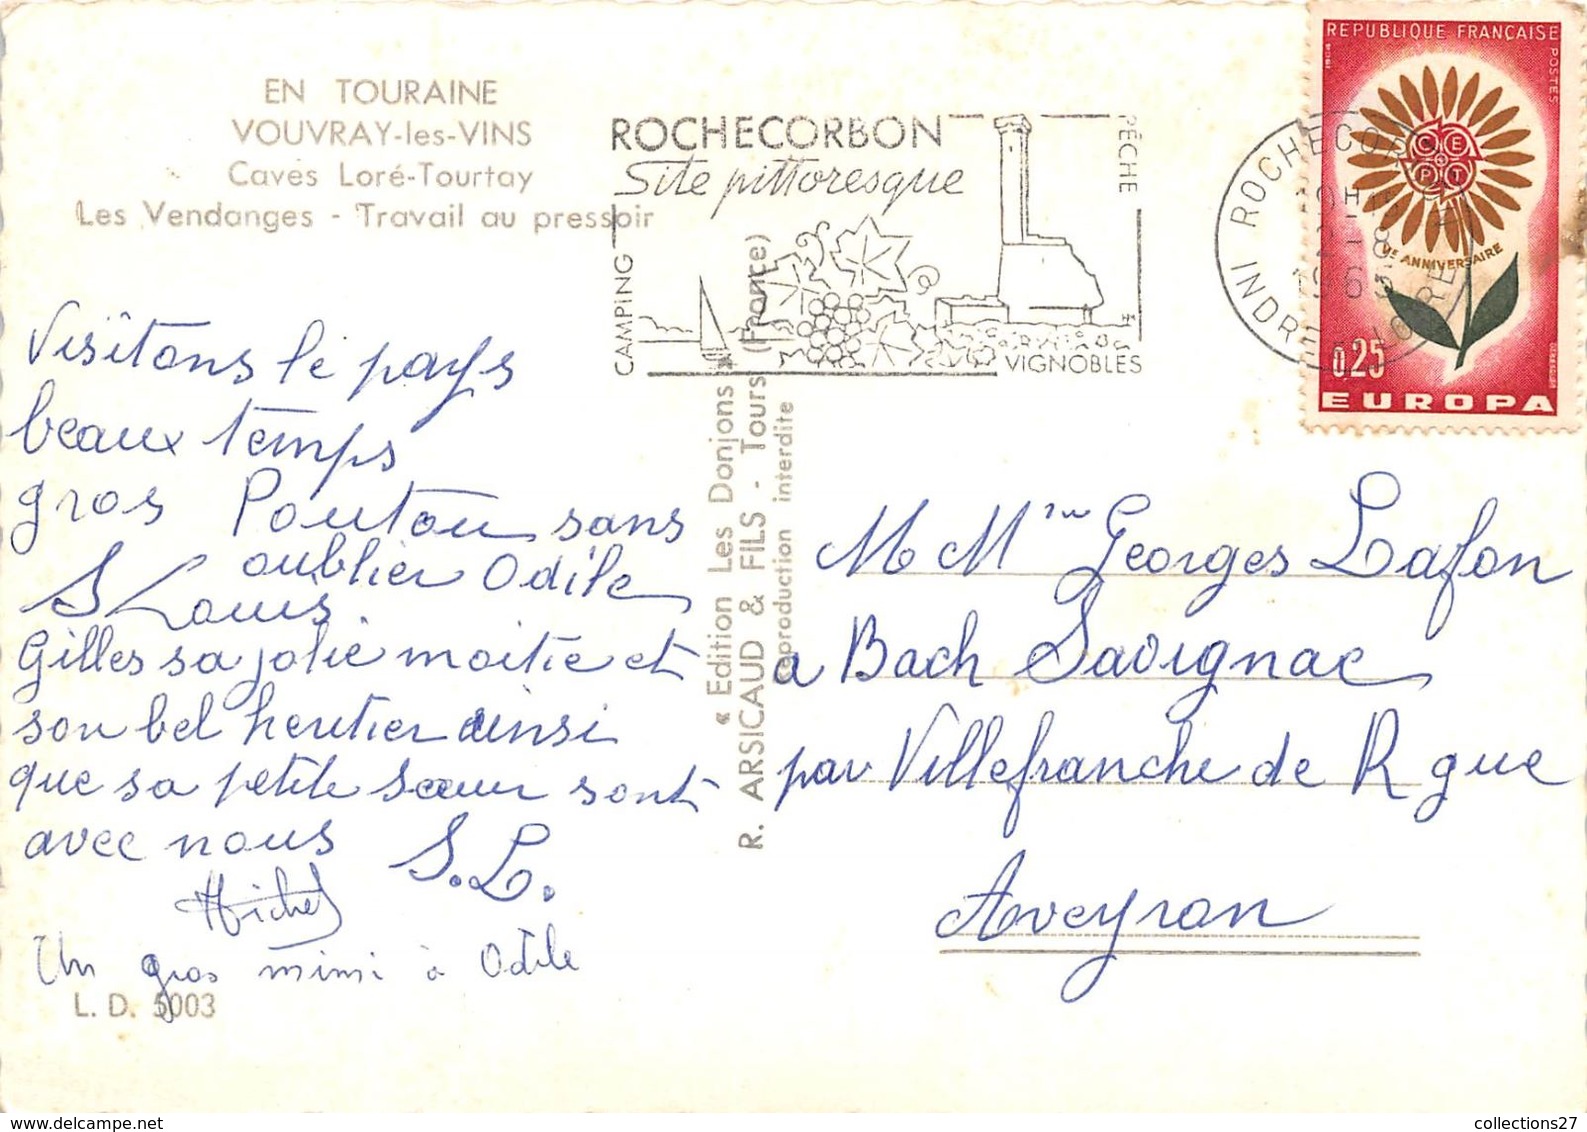 EN TOURAINE
VOUVRAY-les-VINS
Caves Loré-Tourtay
Les Vendanges - Travail au pressoir
ROCHECORBON
Site pittoresque
CAMPING
PÊCHE
VIGNOBLES
REPUBLIQUE FRANÇAISE
POSTES
1964
C E P T
Ve ANNIVERSAIRE
0,25
EUROPA
ROCHECOR
2-8
1965
INDRE LOIRE
Visitons le pays
beaux temps
gros Poutou sans
oublier Odile
S Louis
Gilles sa jolie moitie et
son bel heritier ainsi
que sa petite sœur sont
avec nous S.L.
Michel
Un gros mimi à Odile
L. D. 5003
« Edition Les Donjons »
R. ARSICAUD & FILS - Tours (France)
Reproduction interdite
M Mme Georges Lafon
a Bach Savignac
par Villefranche de R gue
Aveyron
collections27